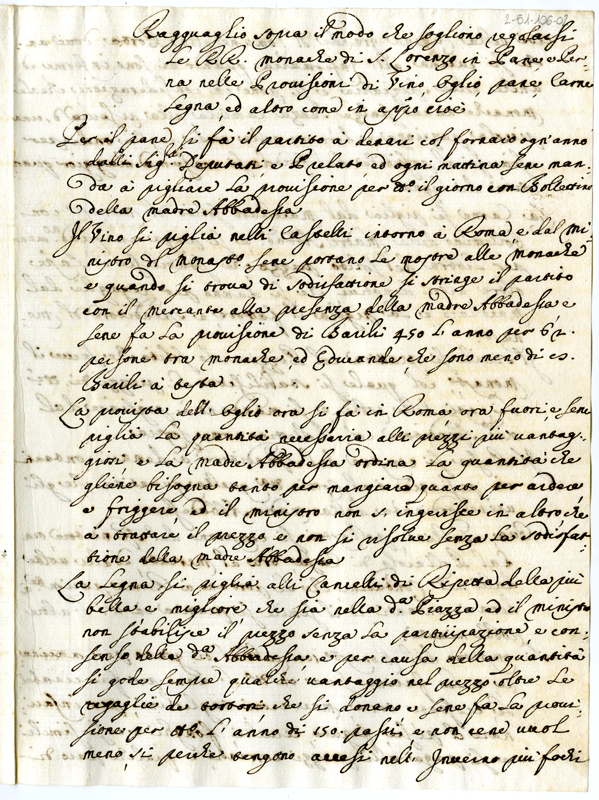 2-51-106-01
Ragguaglio sopra il modo che sogliono regolarsi
Le RR. monache di S. Lorenzo in Pane e Per-
na nelle Provisioni di Vino, oglio, pane, Carne
Legna, ed altro come in app.o cioè
Per il pane, si fà il partito à denari col fornaro ogn'anno
dalli Sig.ri Deputati, e Prelato ed ogni mattina sene man-
da à pigliare La provisione per t.o il giorno con Bollettino
della madre Abbadessa
Il Vino si piglia nelli Castelli intorno à Roma, e dal Mi-
nistro del monast.o sene portano Le mostre alle monache
e quando si trova di sodisfattione si stringe il partito
con il mercante alla presenza della madre Abbadessa e
sene fa La provisione di Barili 450 L'anno per 62.
persone tra monache, ed Educande, che sono meno di
Barili à testa
La provista dell'oglio ora si fà in Roma ora fuori, e sene
piglia La quantità necessaria alli prezzi più vantag-
giosi, e La madre Abbadessa ordina La quantità che
gliene bisogna tanto per mangiare quanto per ardere
e friggere, ed il ministro non s'ingerisce in altro che
à trattare il prezzo, e non si risolve senza La sodisfat-
tione della madre Abbadessa
La Legna si piglia alli Cancelli di Ripetta della più
bella e migliore che sia nella d.a Piazza ed il ministro
non stabilisce il prezzo senza La participazione e con-
senso della d.a Abbadessa e per causa della quantità
si gode sempre qualche vantaggio nel prezzo oltre Le
regaglie de tortori che si donano e sene fa La provi-
sione per L'anno di 150. passi, e non cene vuol
meno, si perche tengono accesi nell'Inverno più fochi